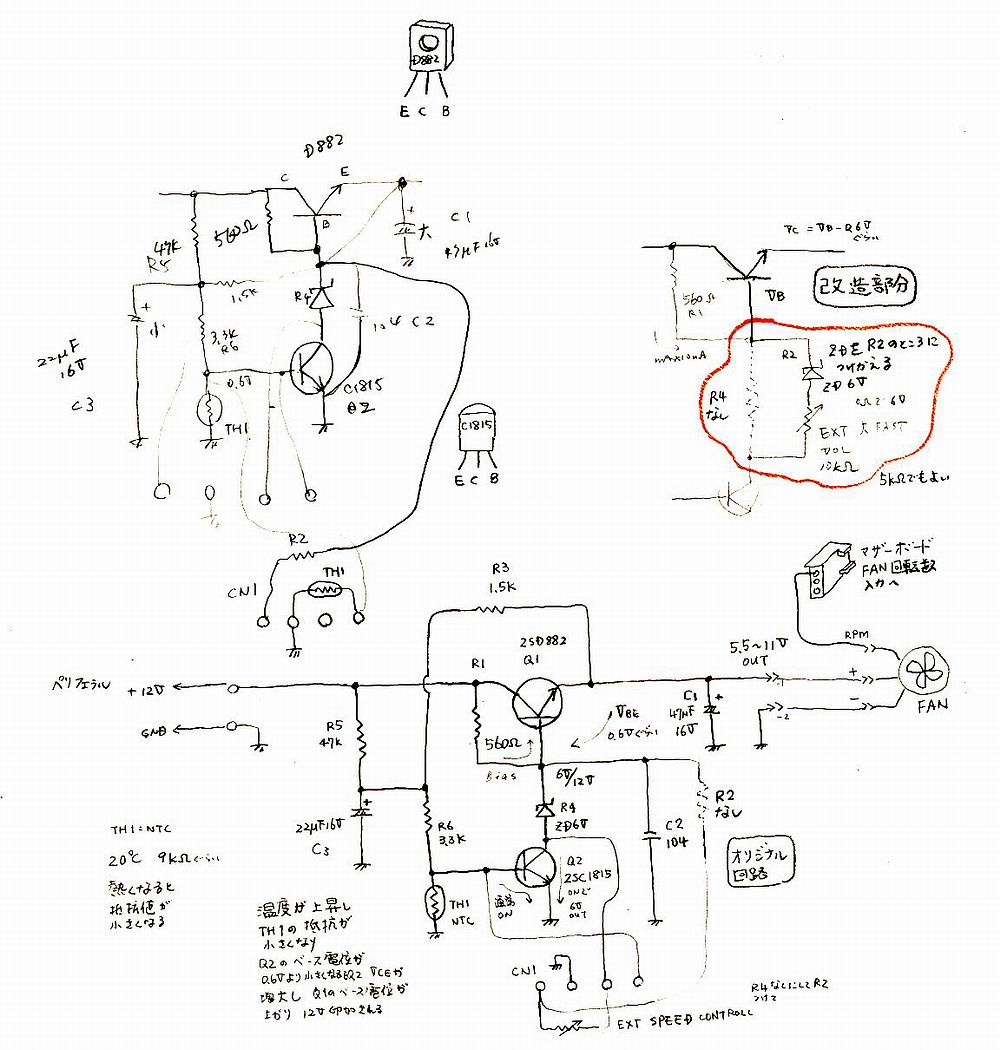 D882
E C B
D882
C
E
B
560Ω
47K
R5
1.5K
R4
大
C1
47μF 16V
小
3.3K
R6
104 C2
22μF
16V
C3
0.6V
C1815
Q2
TH1
C1815
E C B
R2
CN1
TH1
VC = VB-0.6V
ぐらい
改造部分
VB
560Ω
R1
max10mA
R2
ZDを R2のところに
つけかえる
ZD 6V
R4
なし
0Ωで6V
EXT 大 FAST
VOL
10kΩ
5kΩでもよい
R3
1.5K
2SD882
Q1
マザーボード
FAN回転数
入力へ
RPM
5.5~11V
OUT
+
-
FAN
ペリフェラル +12V
GND
R1
R5
47K
560Ω
Bias
VBE
0.6Vぐらい
C1
47μF
16V
6V/12V
22μF16V
C3
R6
3.3K
R4
ZD6V
C2
104
R2
なし
オリジナル
回路
Q2
2SC1815
ONで
6V
OUT
通常
ON
TH1
NTC
TH1:NTC
20℃ 9kΩぐらい
熱くなると
抵抗値が
小さくなる
温度が上昇し
TH1の抵抗が
小さくなり
Q2のベース電位が
0.6Vより小さくなるとQ2 VCEが
増大し Q1のベース電位が
上がり 12V印加される
CN1
EXT SPEED CONTROLL
R4なしにしてR2
つけて